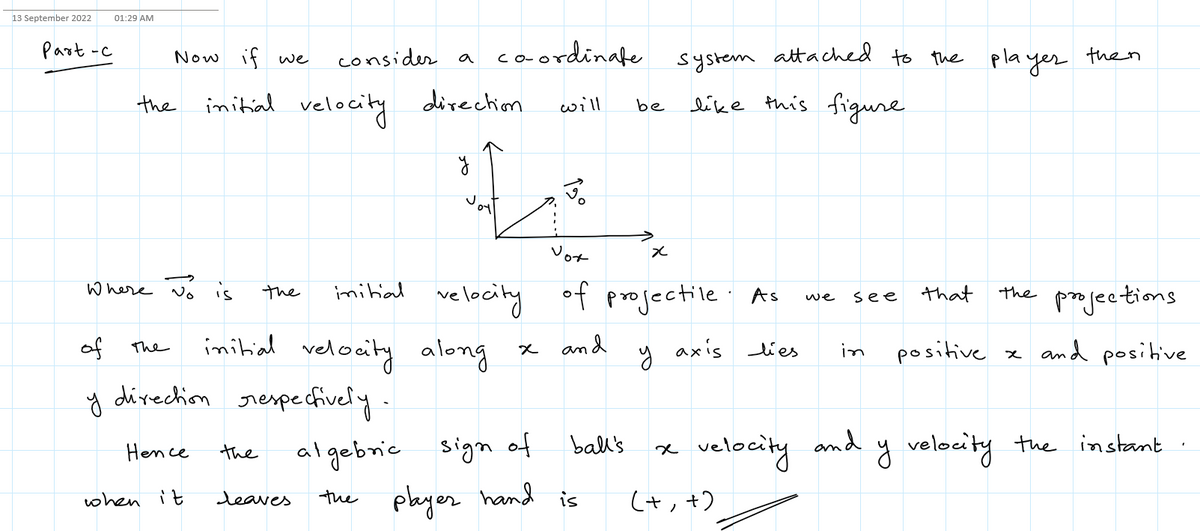 13 September 2022 01:29 AM
Part-c Now if we consider a co-ordinate system attached to the player then
the initial velocity direction will be like this figure
y
v⃗₀
V₀y
V₀x x
Where v⃗₀ is the initial velocity of projectile. As we see that the projections
of the initial velocity along x and y axis lies in positive x and positive
y direction respectively.
Hence the algebric sign of ball's x velocity and y velocity the instant.
when it leaves the player hand is (+, +)